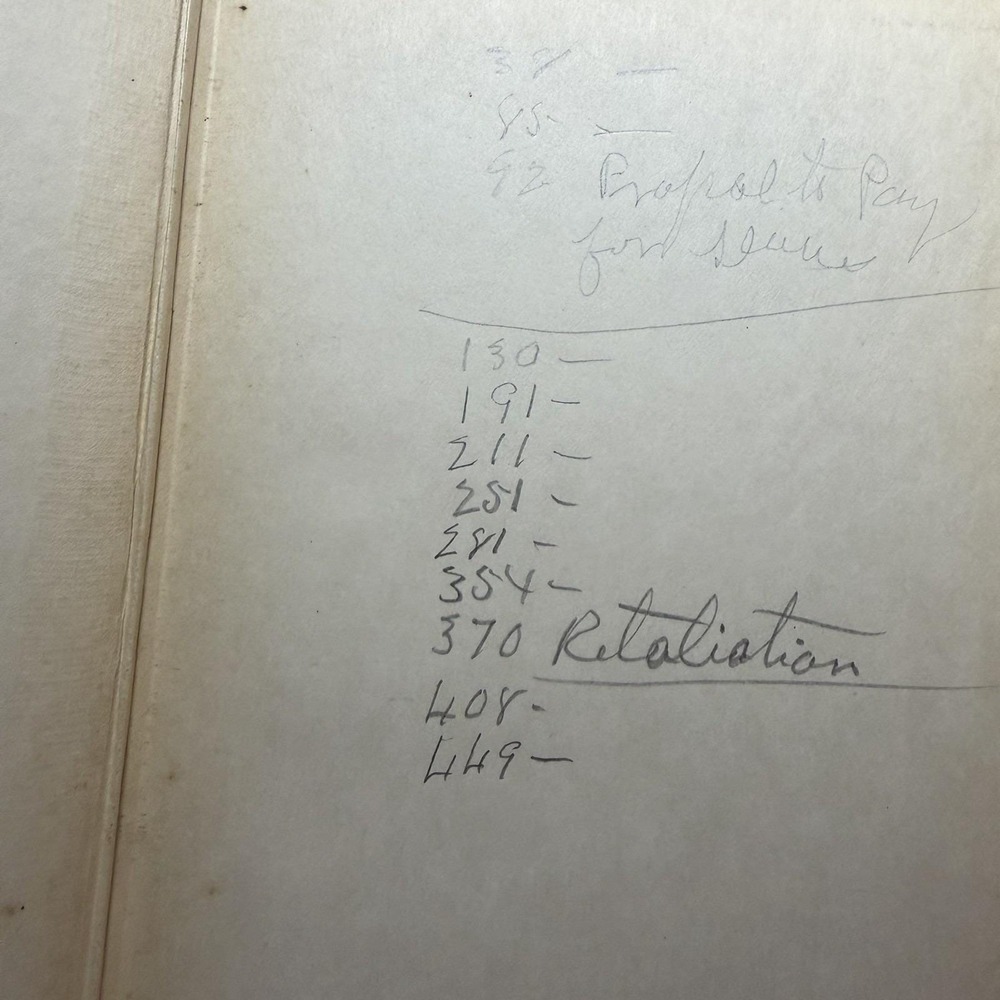 38 —
85- —
92 Proposal to Pay
for slaves
130 —
191 —
211 —
251 -
281 -
354 -
370 Retaliation
408 -
449 —